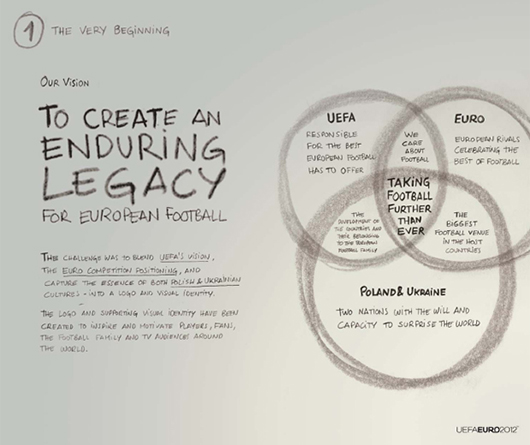 1 THE VERY BEGINNING
OUR VISION
TO CREATE AN
ENDURING
LEGACY
FOR EUROPEAN FOOTBALL
THE CHALLENGE WAS TO BLEND UEFA'S VISION,
THE EURO COMPETITION POSITIONING, AND
CAPTURE THE ESSENCE OF BOTH POLISH & UKRAINIAN
CULTURES - INTO A LOGO AND VISUAL IDENTITY.
THE LOGO AND SUPPORTING VISUAL IDENTITY HAVE BEEN
CREATED TO INSPIRE AND MOTIVATE PLAYERS, FANS,
THE FOOTBALL FAMILY AND TV AUDIENCES AROUND
THE WORLD.
UEFA
RESPONSIBLE
FOR THE BEST
EUROPEAN FOOTBALL
HAS TO OFFER
WE
CARE
ABOUT
FOOTBALL
EURO
EUROPEAN RIVALS
CELEBRATING THE
BEST OF FOOTBALL
TAKING
FOOTBALL
FURTHER
THAN
EVER
THE
DEVELOPMENT OF
THE COUNTRIES AND
THEIR BELONGING
TO THE EUROPEAN
FOOTBALL FAMILY
THE
BIGGEST
FOOTBALL VENUE
IN THE HOST
COUNTRIES
POLAND & UKRAINE
TWO NATIONS WITH THE WILL AND
CAPACITY TO SURPRISE THE WORLD
UEFAEURO2012™